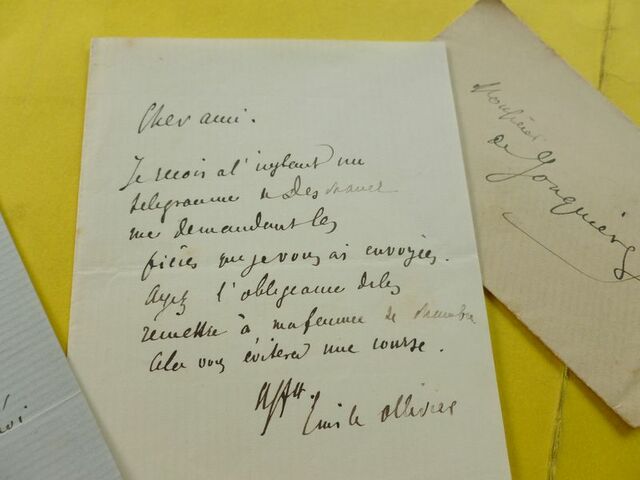 Cher ami.
Je reçois à l'instant un
télégramme de Des
me demandant les
pièces que je vous ai envoyées.
Ayez l'obligeance de les
remettre à ma femme de chambre
cela vous évitera une course.
Aff.
Emile Ollivier
Monsieur
de Jonquières